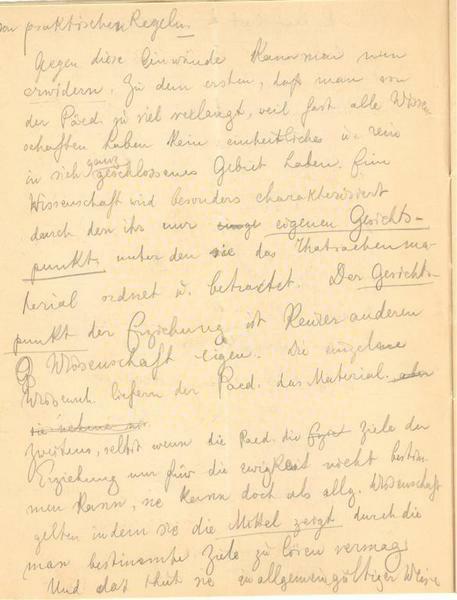 von praktischen Regeln
Gegen diese Einwände kann man nun
erwidern. Zu dem ersten, daß man von
der Päd. zu viel verlangt, weil fast alle Wissen
schaften haben kein einheitliches u. rein
in sich ganz geschlossenes Gebiet haben. Eine
Wissenschaft wird besonders charakterisiert
durch den ihr nur eigenen Gesichts-
punkt unter den sie das Thatsachenma-
terial ordnet u. betrachtet. Der Gesichts-
punkt der Erziehung ist keiner anderen
Wissenschaft eigen. Die einzelnen
Wissensch. liefern der Paed. das Material. aber
sie nehme
Zweitens, selbst wenn die Paed. die Ziele der
Erziehung nur für die ewigkeit nicht bestim
men kann, sie kann doch als allg. Wissenschaft
gelten indem sie die Mittel zeigt durch die
man bestimmte Ziele zu lösen vermag
Und das thut sie in allgemeingültiger Weise